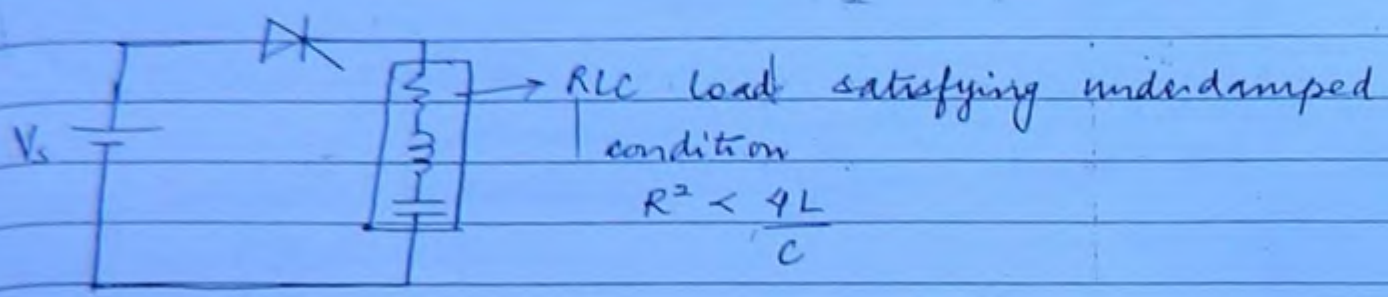 → RLC load satisfying underdamped
Vs
condition
R² < 4L
C